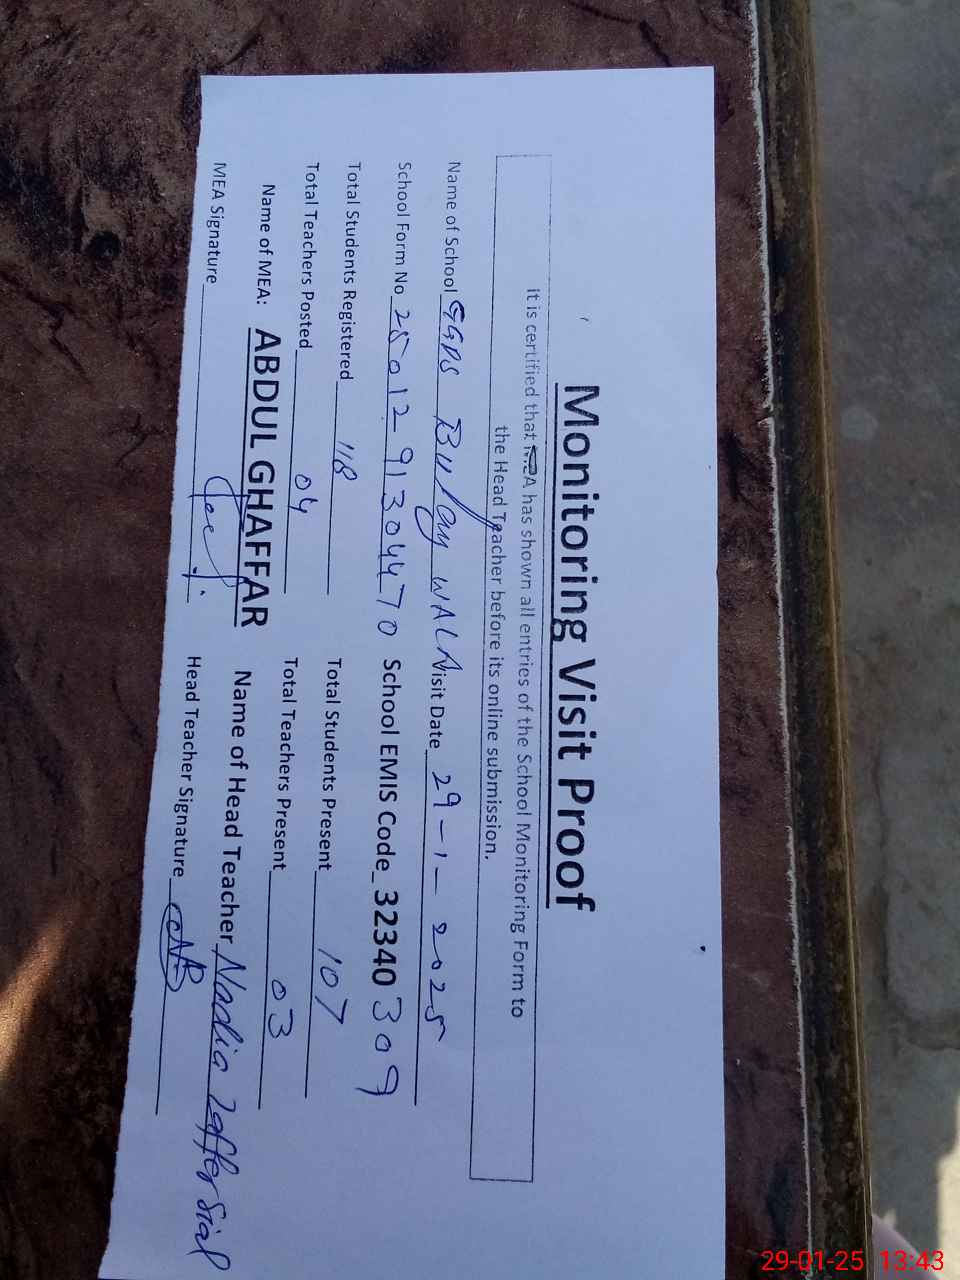 Monitoring Visit Proof
it is certified that MEA has shown all entries of the School Monitoring Form to
the Head Teacher before its online submission.
Name of School GGPS Bulay WALA Visit Date 29-1-2025
School Form No 2501291304470 School EMIS Code_32340309
Total Students Registered 118 Total Students Present 107
Total Teachers Posted 04 Total Teachers Present 03
Name of MEA: ABDUL GHAFFAR Name of Head Teacher Nadia Zaffer Sial
MEA Signature Head Teacher Signature
29-01-25 13:43